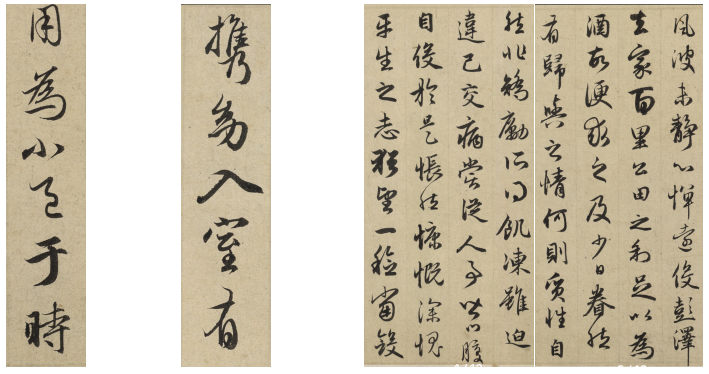 風波未靜心憚遠役彭澤
去家百里公田之利足以為
酒故便求之及少日眷然
有歸與之情何則質性自
然非矯勵所得飢凍雖迫
違己交病嘗從人事皆口腹
自役於是悵然慷慨深愧
平生之志猶望一稔當斂
攜幼入室有
用為小邑于時